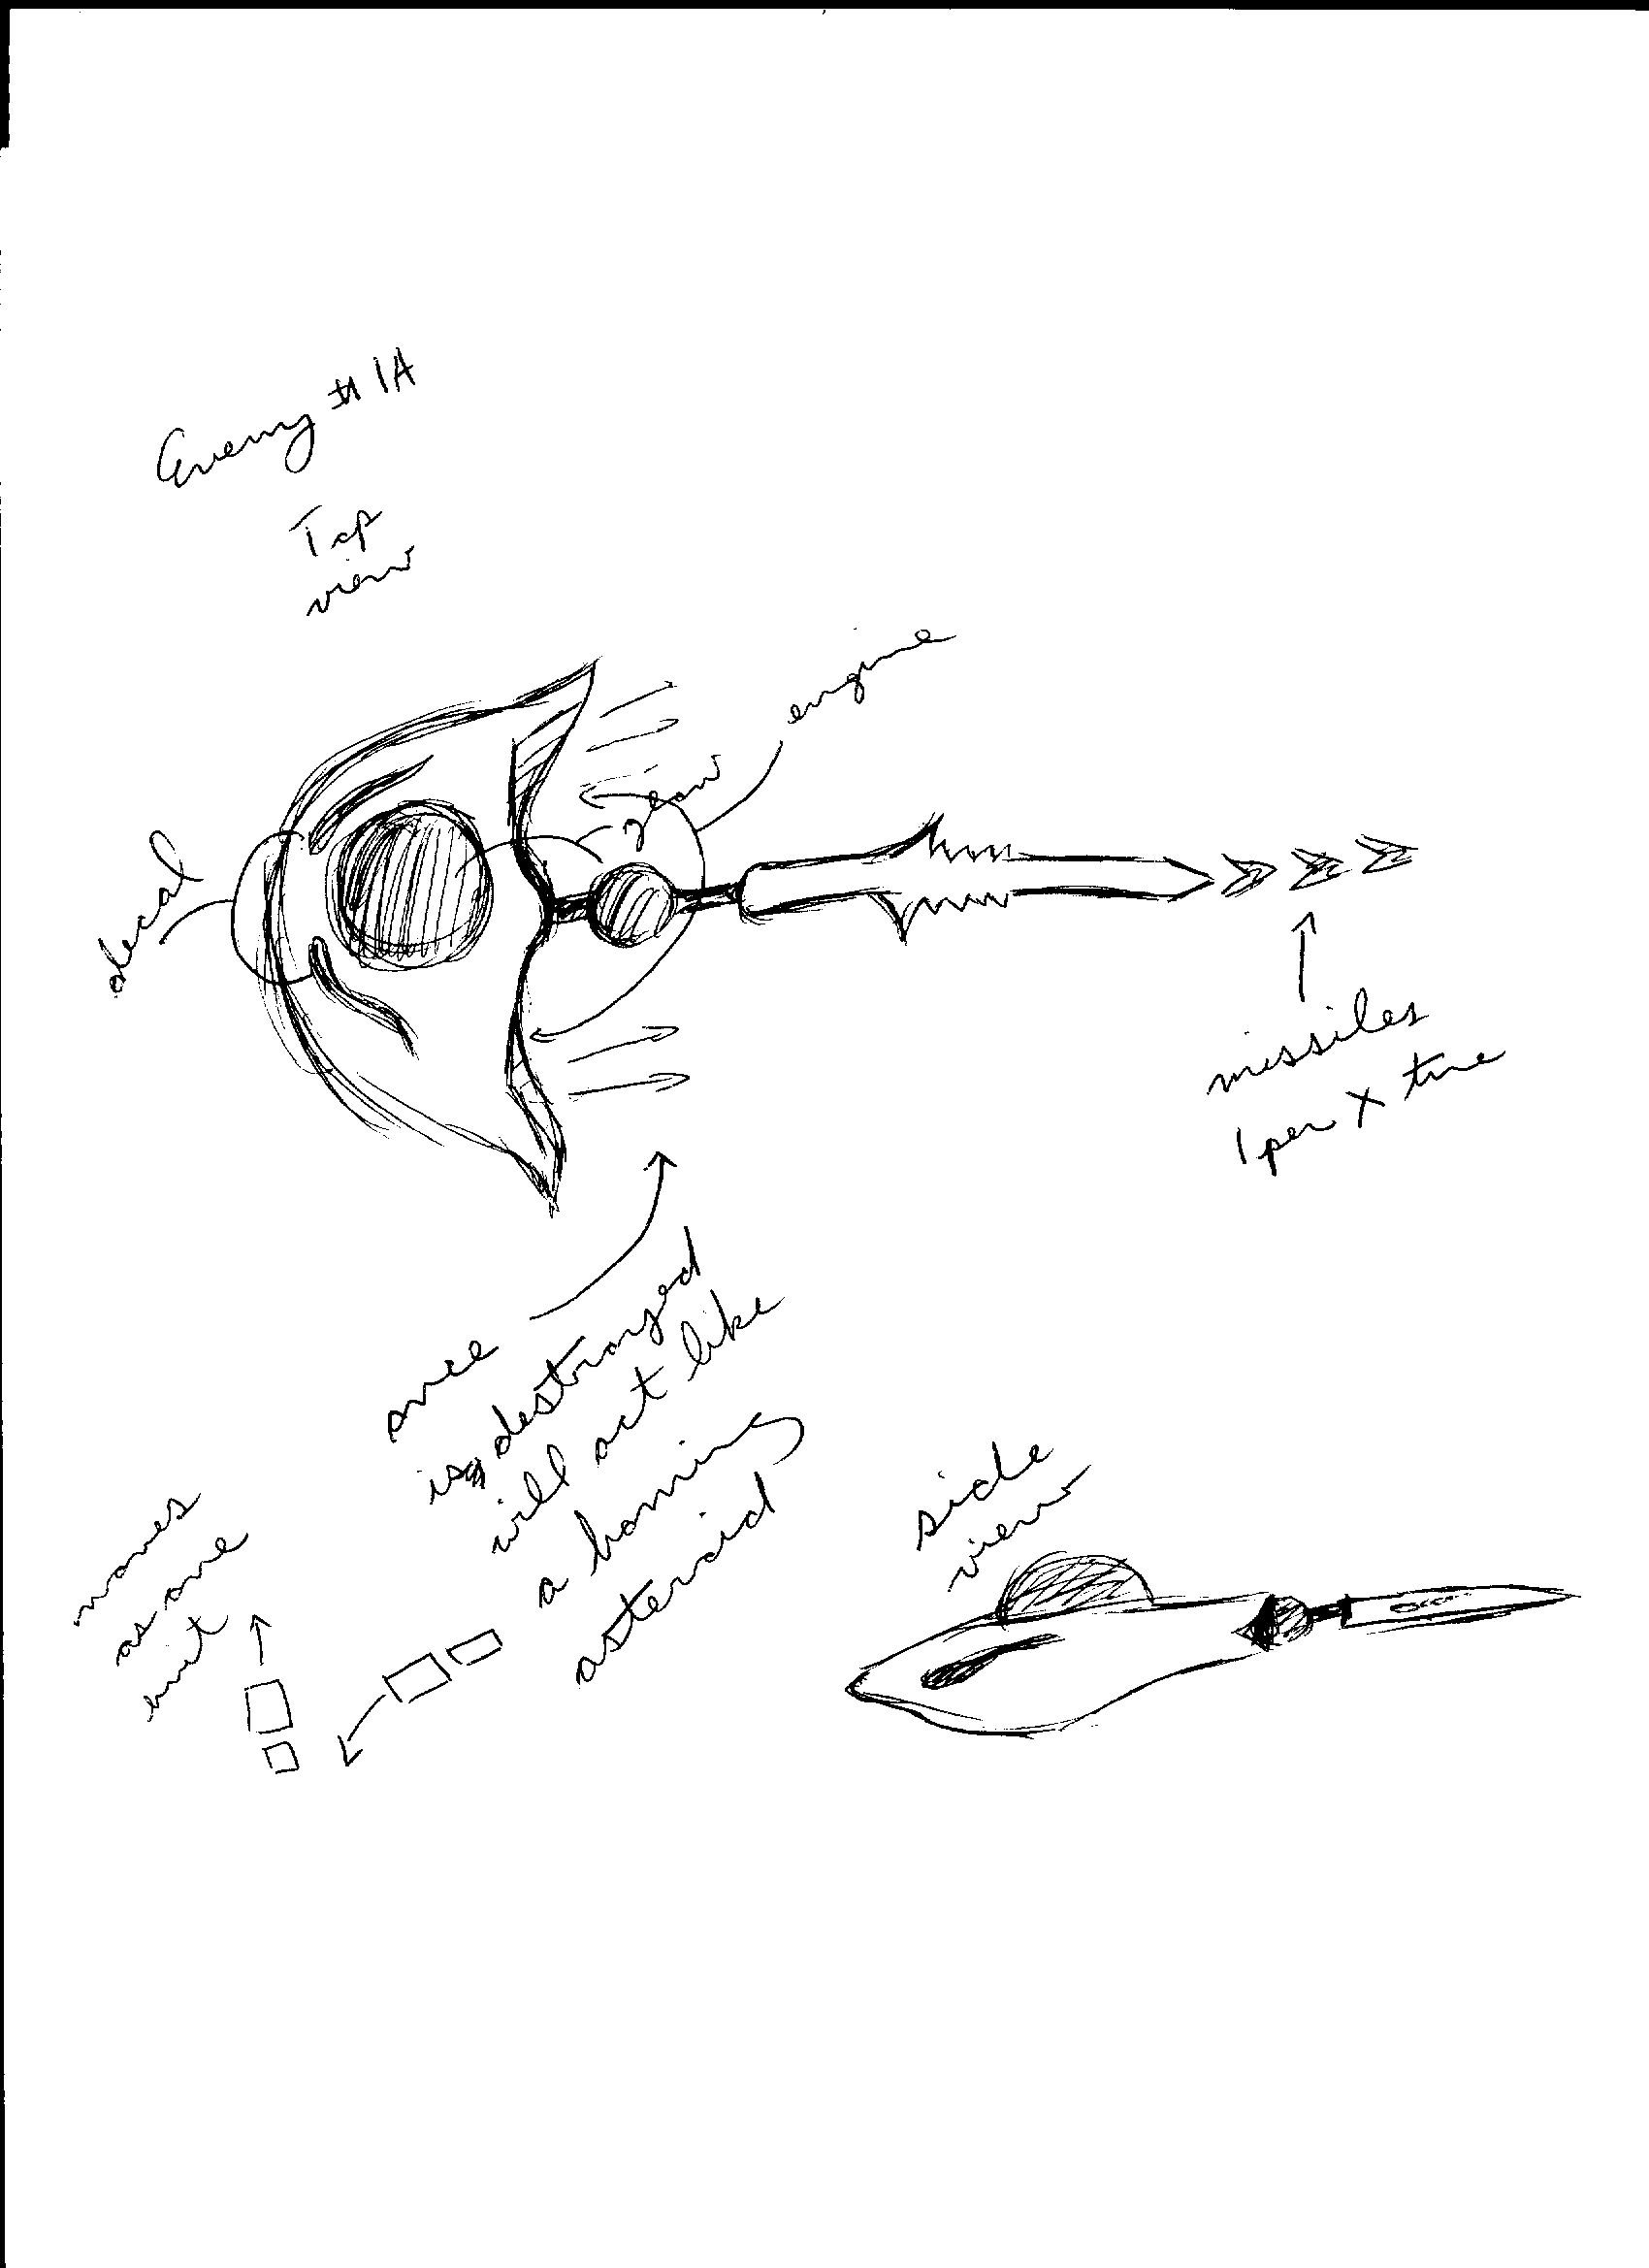 Enemy # 1A
Top
view
engine
glow
decal
missiles
1 per X time
once
is destroyed
will act like
a homing
asteroid
moves
as one
unit
side
view